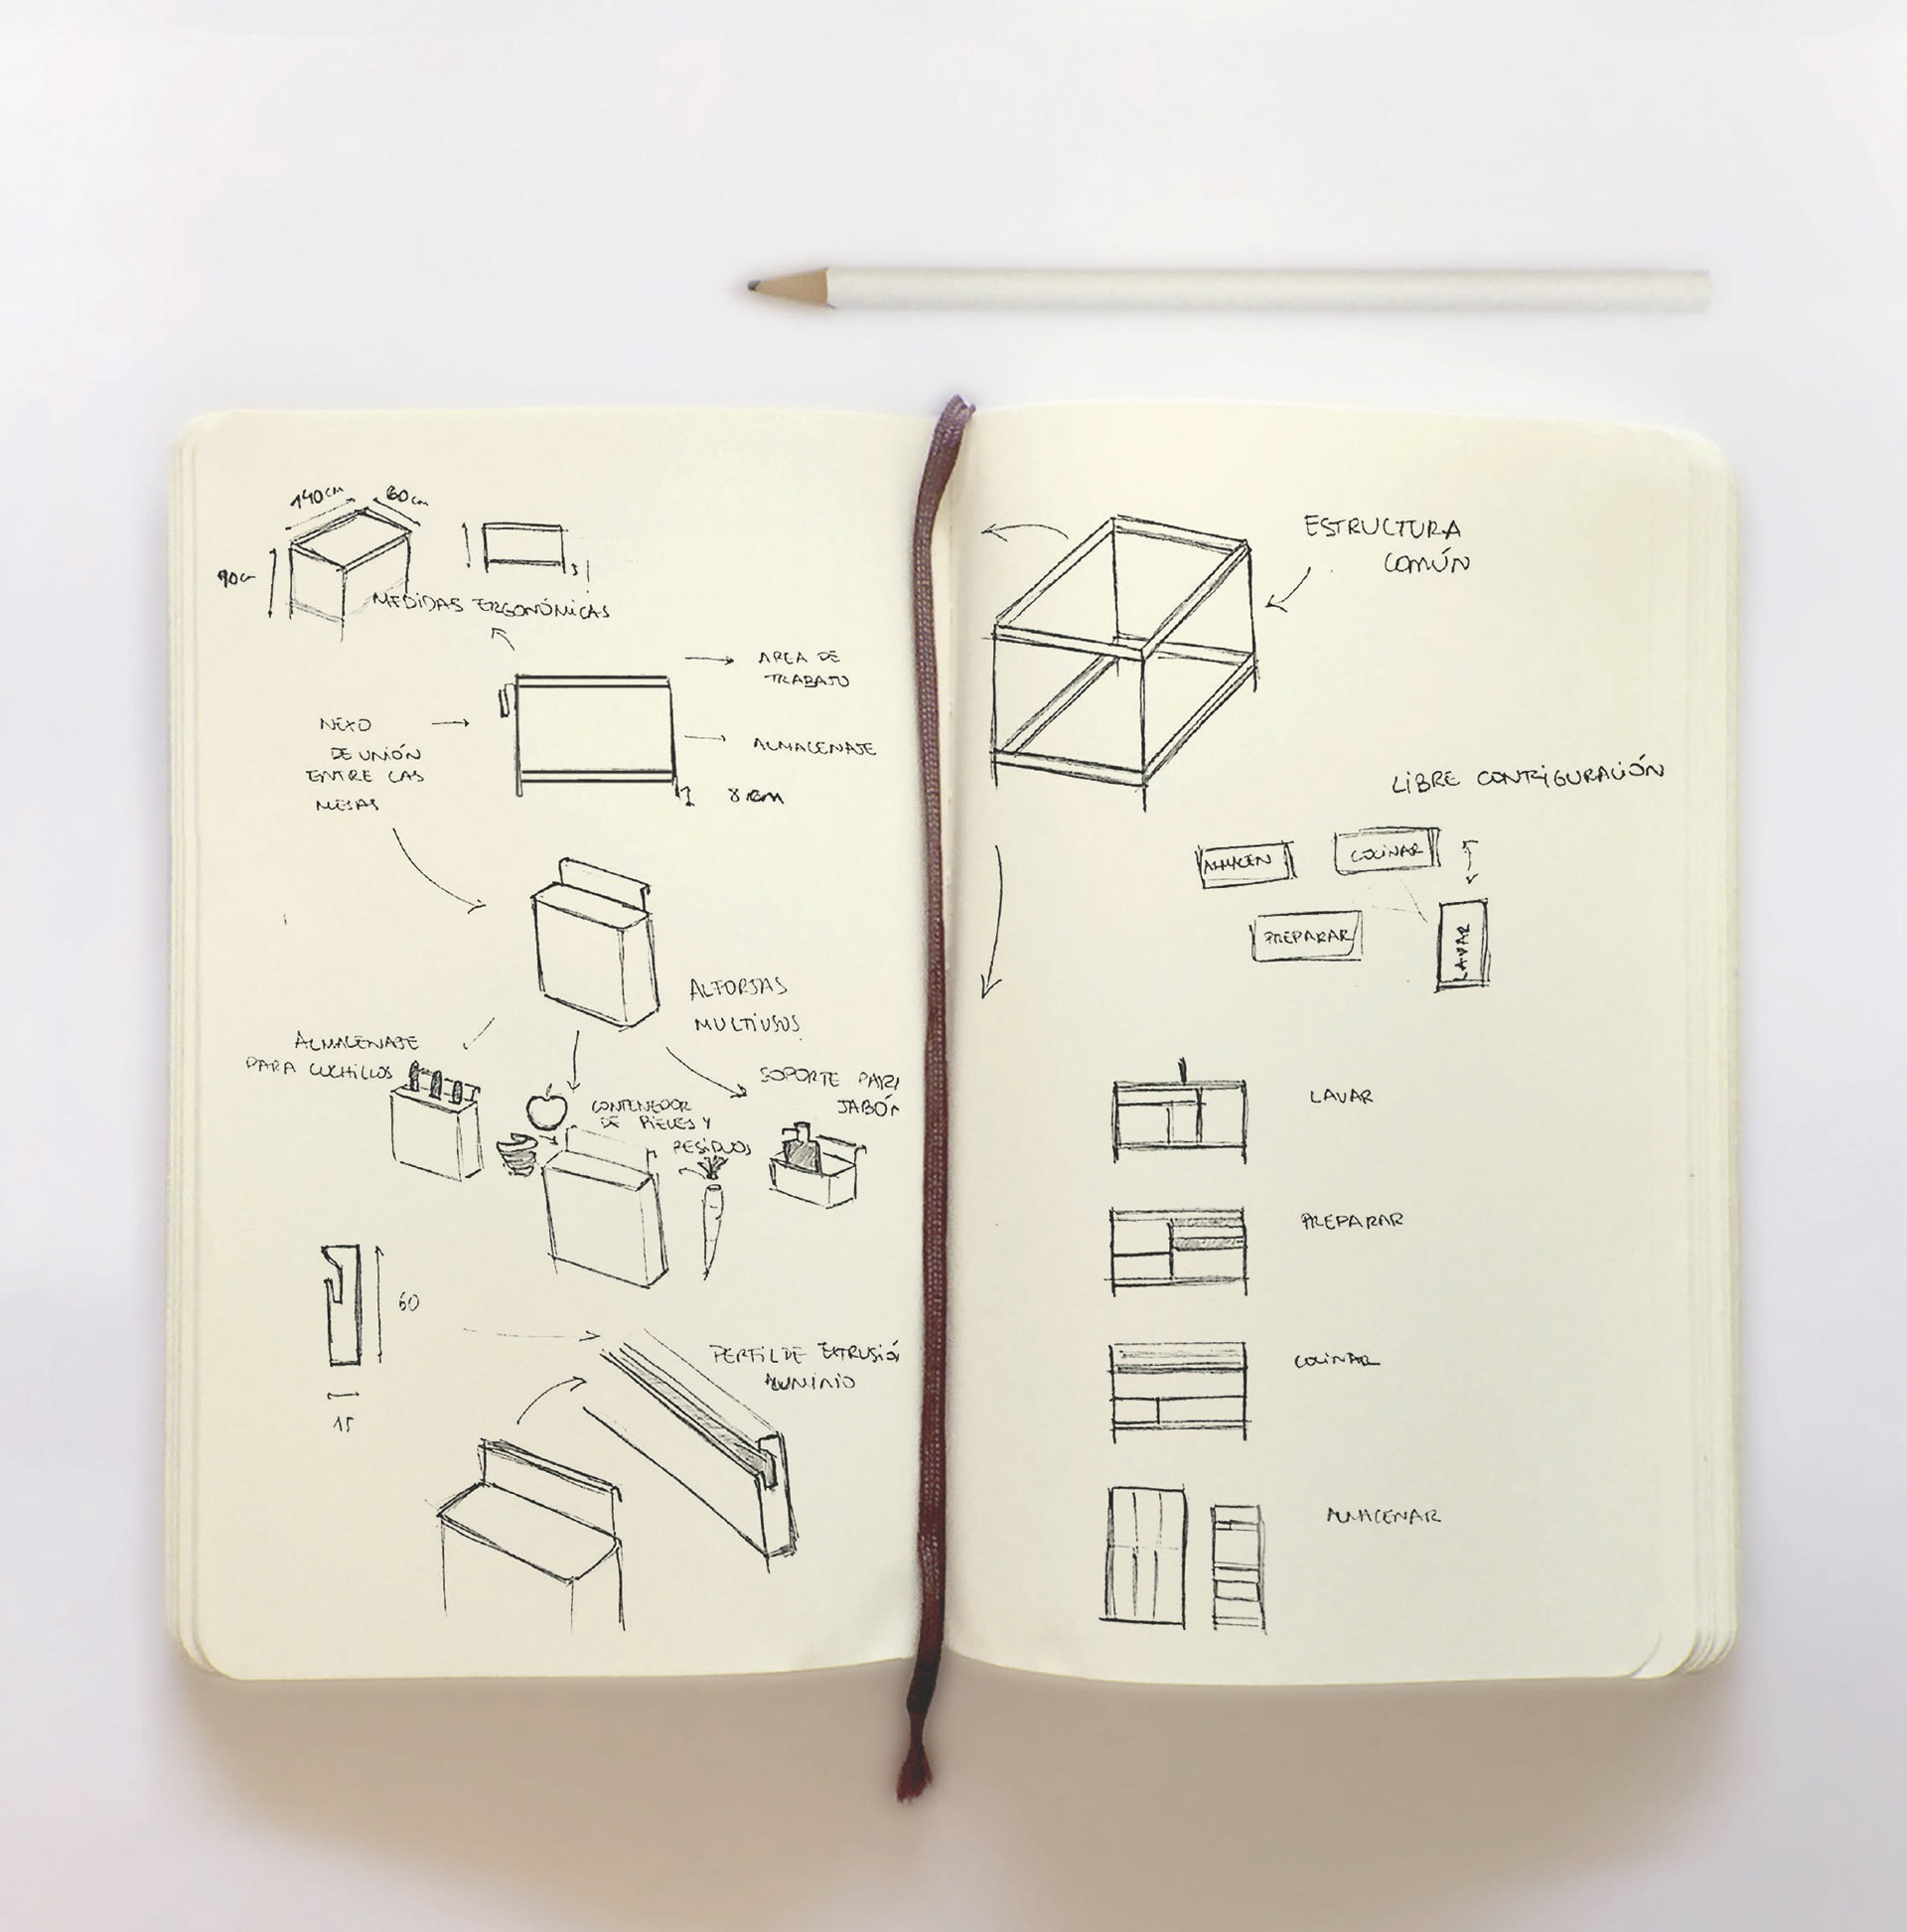 140cm
60cm
90cm
MEDIDAS ERGONÓMICAS
AREA DE
TRABAJO
NEXO
DE UNIÓN
ENTRE LAS
MESAS
ALMACENAJE
8 cm
ALFORJAS
MULTIUSOS
ALMACENAJE
PARA CUCHILLOS
CONTENEDOR
DE PIELES Y
RESIDUOS
SOPORTE PARA
JABÓN
60
15
PERFIL DE EXTRUSIÓN
ALUMINIO
ESTRUCTURA
COMÚN
LIBRE CONFIGURACIÓN
ALMACEN
COCINAR
PREPARAR
LAVAR
LAVAR
PREPARAR
COCINAR
ALMACENAR